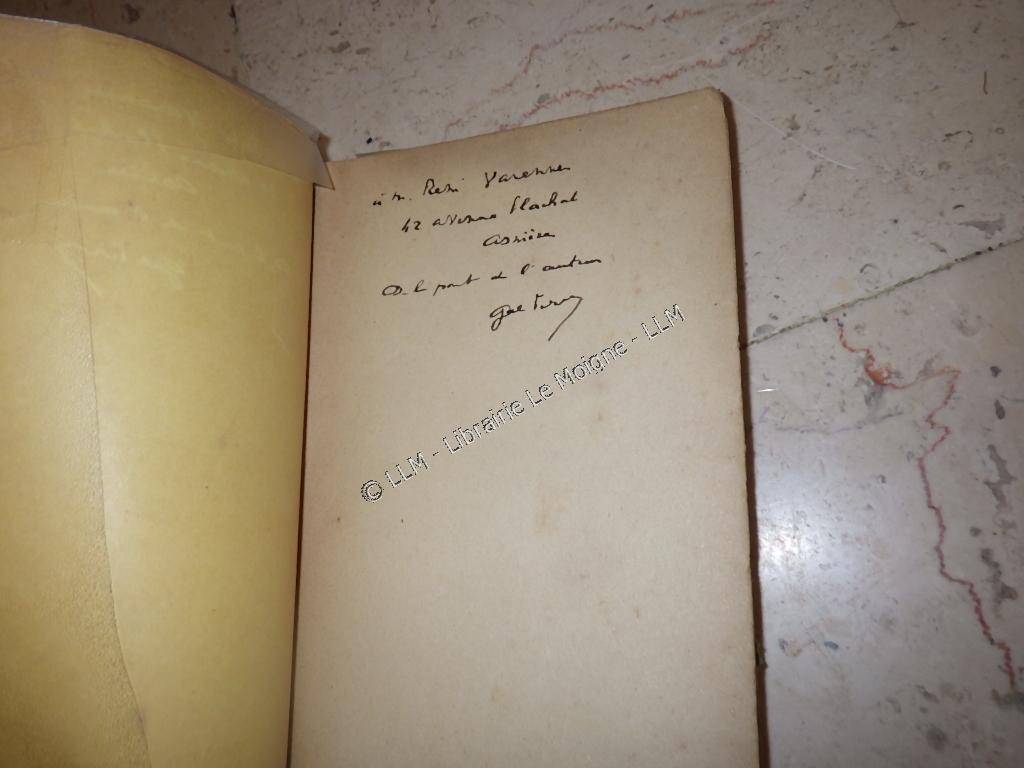 à M. René Varenne
42 avenue Flachat
Asnières
De la part de l'auteur
© LLM - Librairie Le Moigne - LLM